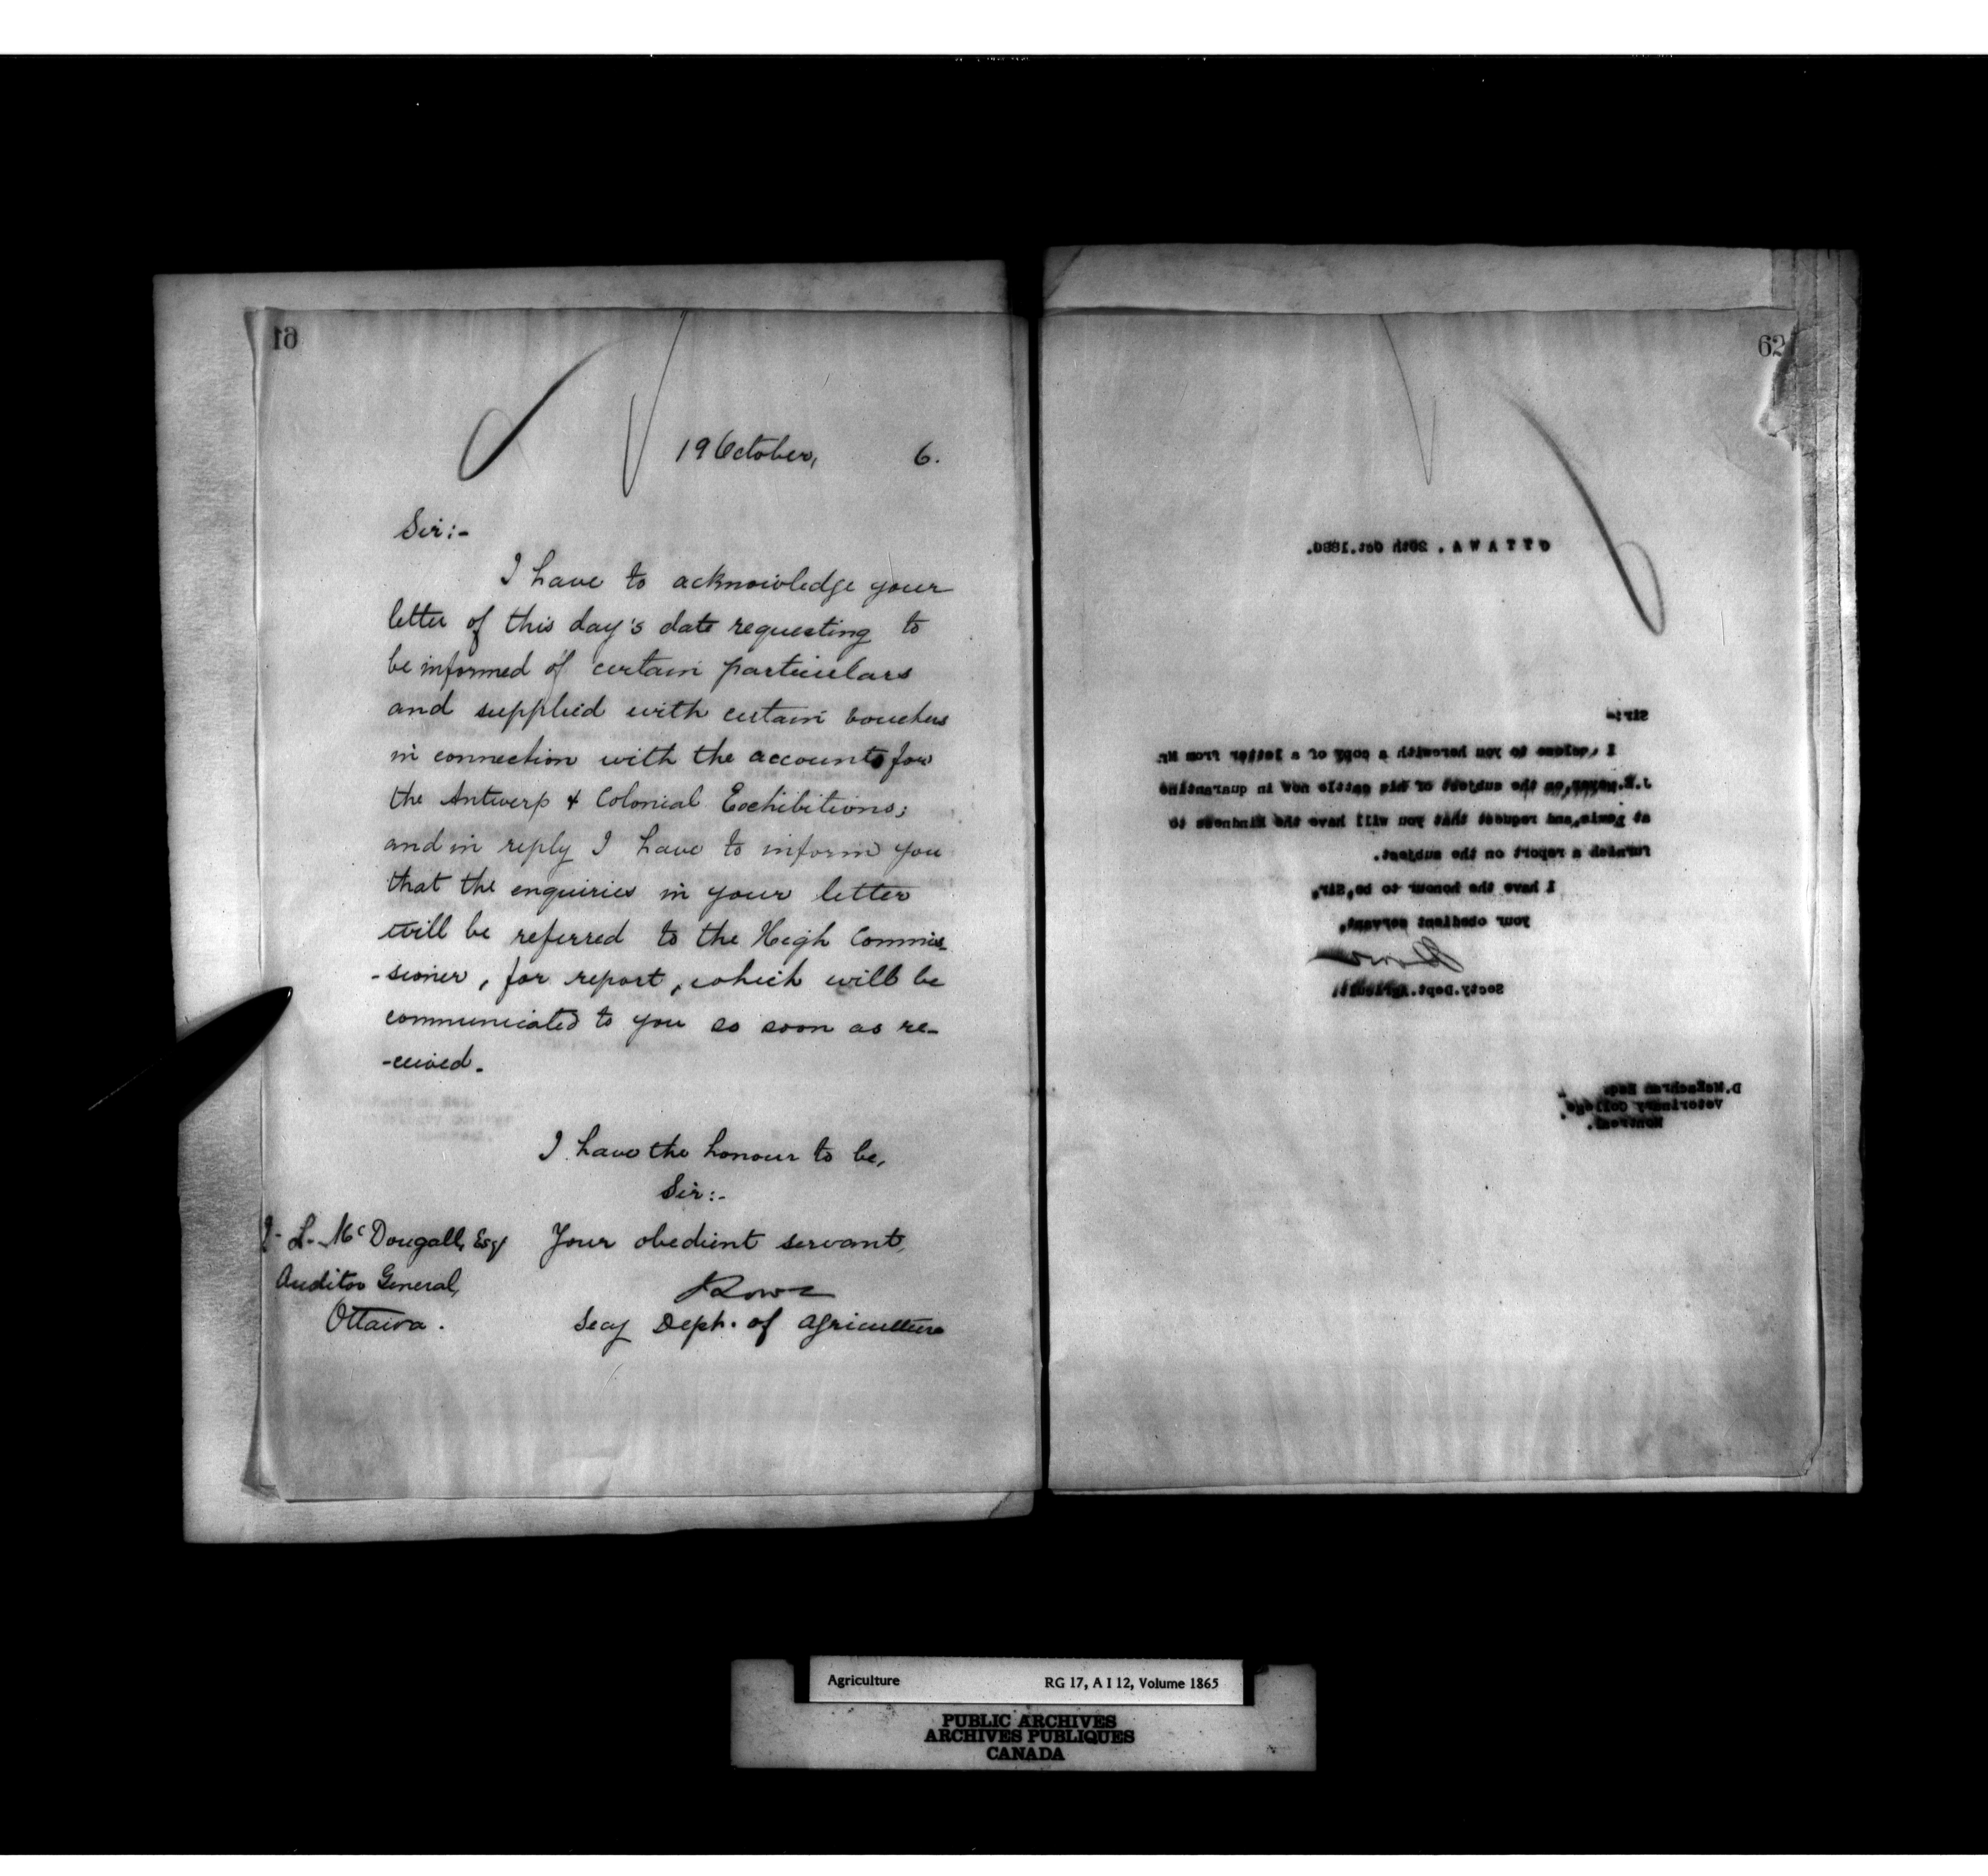 61
19 October, 6.
Sir:-
I have to acknowledge your
letter of this day's date requesting to
be informed of certain particulars
and supplied with certain vouchers
in connection with the accounts for
the Antwerp & Colonial Exhibitions;
and in reply I have to inform you
that the enquiries in your letter
will be referred to the High Commis-
-sioner, for report, which will be
communicated to you so soon as re-
-ceived.
I have the honour to be,
Sir:-
Your obedient servant,
J. L. McDougall, Esq
Auditor General,
Ottawa.
Lowe
Secy Dept. of Agriculture
62
OTTAWA. 20th Oct. 1886.
Sir:-
I enclose to you herewith a copy of a letter from Mr.
J.E. on the subject of his cattle now in quarantine
at Levis, and request that you will have the kindness to
furnish a report on the subject.
I have the honour to be, Sir,
your obedient servant,
Lowe
Secty. Dept. Agricult.
D. McEachran Esq.
Veterinary College
Montreal.
Agriculture RG 17, A I 12, Volume 1865
PUBLIC ARCHIVES
ARCHIVES PUBLIQUES
CANADA